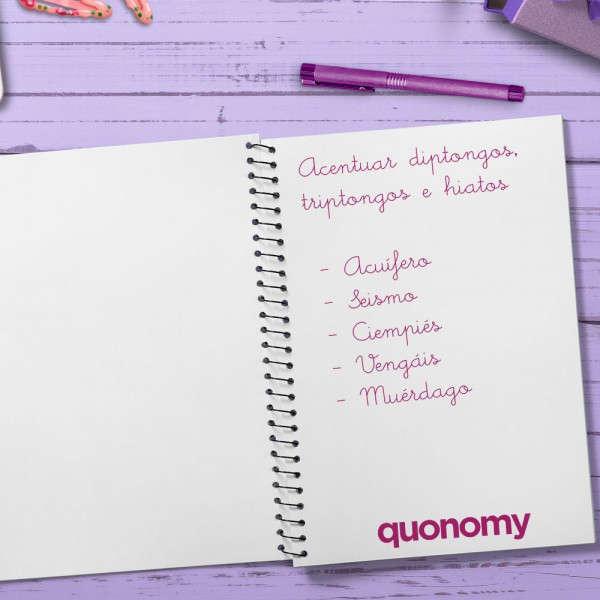 Acentuar diptongos,
triptongos e hiatos
- Acuífero
- Seismo
- Ciempiés
- Vengáis
- Muérdago
quonomy